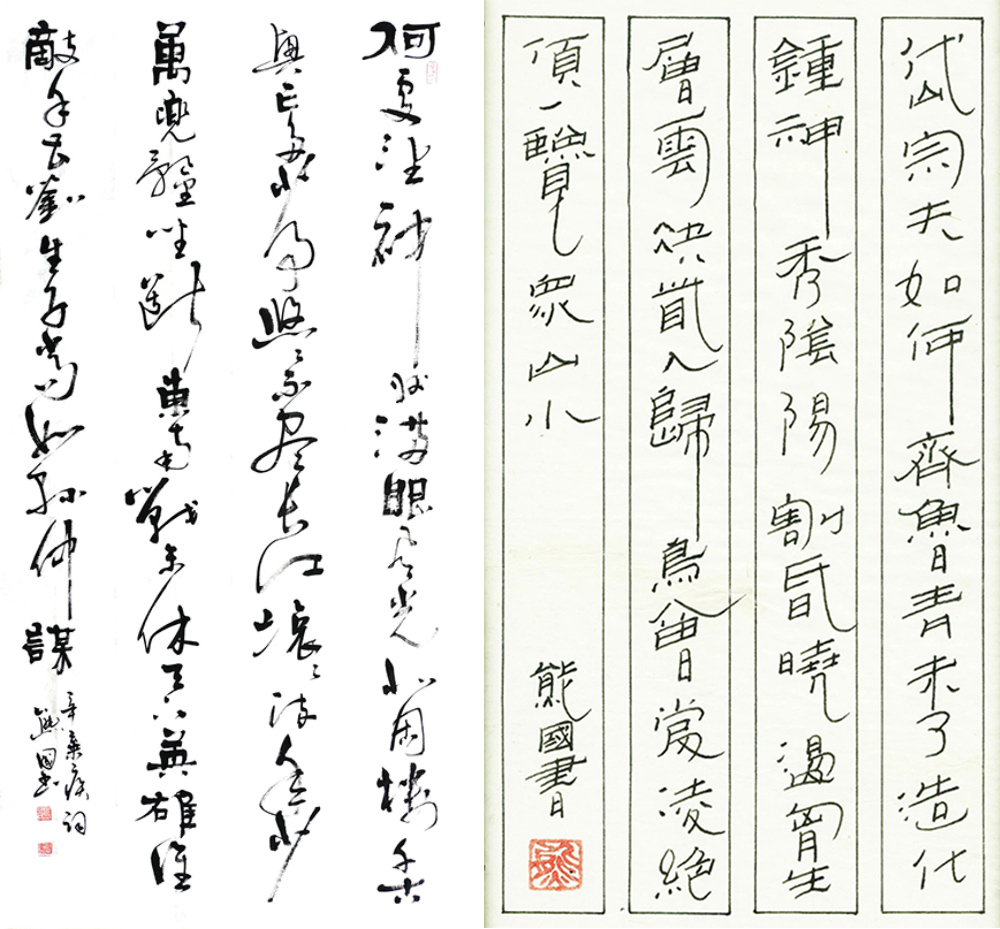 何處望神州滿眼風光北固樓千古
興亡多少事悠〻不尽長江滾〻流年少
萬兜鍪坐斷東南戰未休天下英雄誰
敵手曹劉生子當如孫仲謀
辛棄疾詞
熊國書
岱宗夫如何齊魯青未了造化
鍾神秀陰陽割昏曉盪胷生
層雲決眥入歸鳥會當凌絕
頂一覽衆山小
熊國書
熊